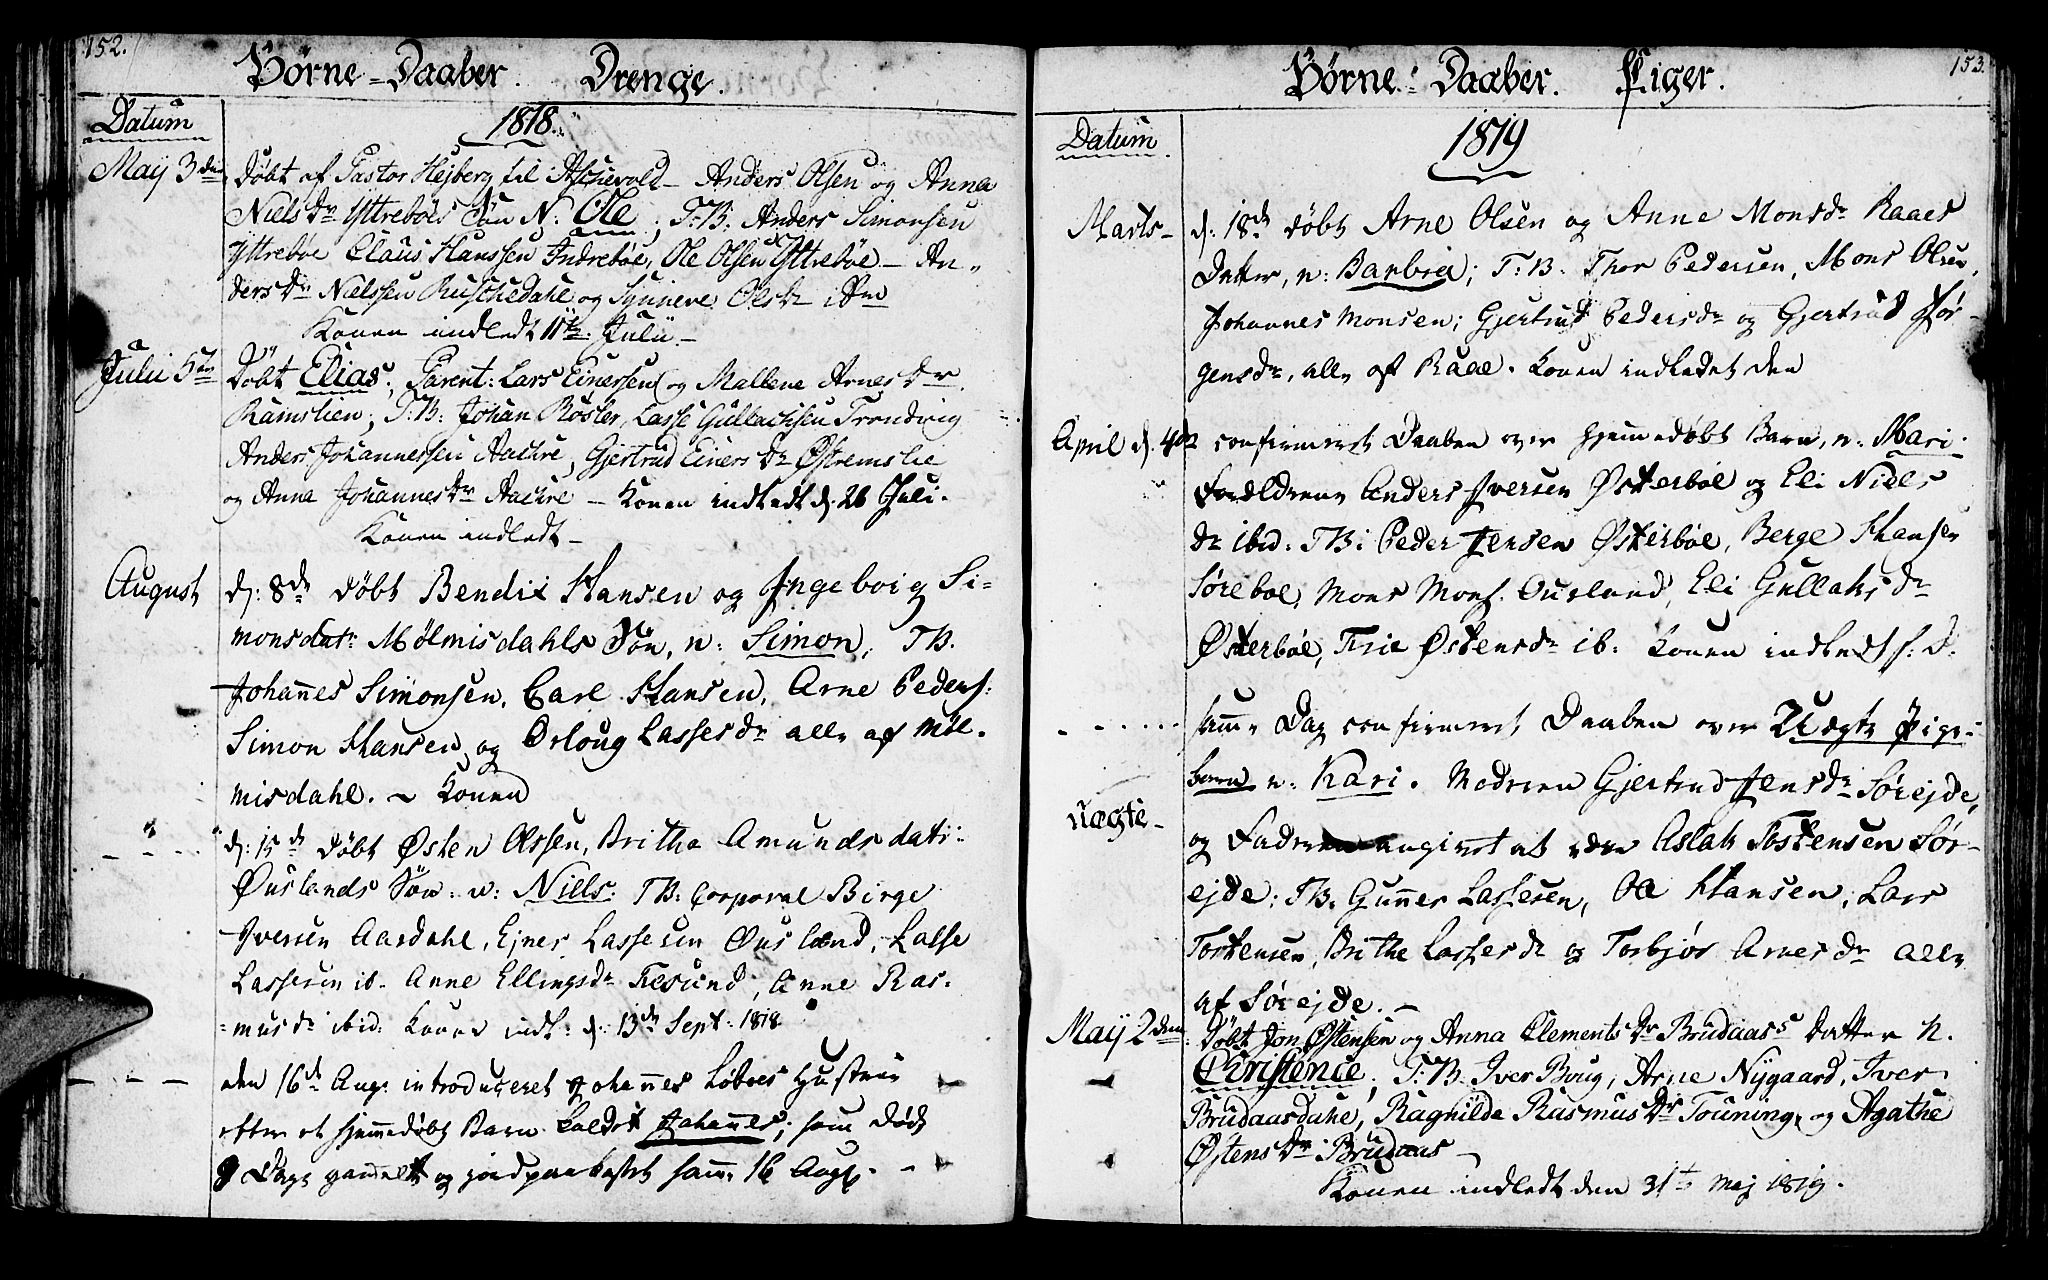 152.
Børne-Daaber. Drenge.
Datum
1818.
May 3den Døbt af Pastor Hejberg til Aschevold - Anders Olsen og Anna
Niels Dr Yttrebøes Søn N: Ole; T:B: Anders Simonsen
Yttrebøe Claus Hanssen Indrebøe, Ole Olsen Yttrebøe - An-
ders Dr Nielssen Ruschedahl og Synneve Ols Dr ibm
Konen indledt 11te Julii -
Julii 5te Døbt Elias; Parent: Lars Einersen og Mallene Arnes Dr
Ramslien; T:B: Johan Røsler, Lasse Gullachsen Trondvig
Anders Johannessen Aachre, Gjertrud Einers Dr Østremslie
og Anna Johannes Dr Aachre - Konen indledt d. 26 Juli.
Konen indledt -
August d: 8de døbt Bendix Hansen og Ingeborg Si-
monsdatr Mølmisdahls Søn, n: Simon, TB.
Johañes Simonsen, Carl Hansen, Arne Peders:
Simon Hansen og Orloug Lassesdr alle af Møl-
misdahl. - Konen
d: 15de døbt Østen Olssen, Brithe Amundsdatr:
Ouslands Søn: n: Niels: TB: Corporal Birge
Iversen Aardahl, Ejner Lassesen Ousland, Lasse
Lassesen ib. Anne Ellingsdr Tesund, Anne Ras-
musdr ibid: Konen indl: d: 13de Sept: 1818
den 16de Aug: introduceret Johañes Løtves Hustrue
efter et hjemmedøbt Barn kaldet Johañes; som døde
8 Dage gammelt og jordpaakastet samme 16 Aug. -
153.
Børne-Daaber. Piger.
Datum.
1819
Marts - d: 18de døbt Arne Olsen og Anne Monsdr Raaes
Datter, n: Barbra; T:B: Thor Pedersen, Mons Olsen,
Johannes Monsen; Gjertrud Pedersdr og Gjertrud Jør-
gensdr, alle af Raae. Konen indledet den
April d. 4de confirmeret Daaben over hjemmedøbt Barn, n: Mari.
Forældrene Anders Iversen Østerbøe og Eli Niels
dr ibid: TB: Peder Jensen Østerbøe, Berge Hansen
Sørebøe, Mons Mons. Ousland, Eli Gullaksdr
Østerbøe, Brie Østensdr ib. Konen indledt s: D.
samme Dag confirmeret Daaben over Uægte Pige-
barn n: Kari. Moderen Gjertrud Jensdr Sørejde,
uægte - og Faderen angivet at være Aslak Tostensen Sør-
ejde; TB. Guñer Lassesen, Ole Hansen, Lars
Tostensen, Brithe Lassesdr og Torbjør Arnesdr alle
af Sørejde. -
May 2den: Døbt Jon Østensen og Anna Clements Dr Brudaass Datter N.
Christence; T:B: Iver Boug, Arne Nÿgaard, Iver
Brudaasdahl, Ragnilde Rasmus Dr Touning, og Agathe
Østens Dr Brudaas -
Konen indledt den 31te Maj 1819.